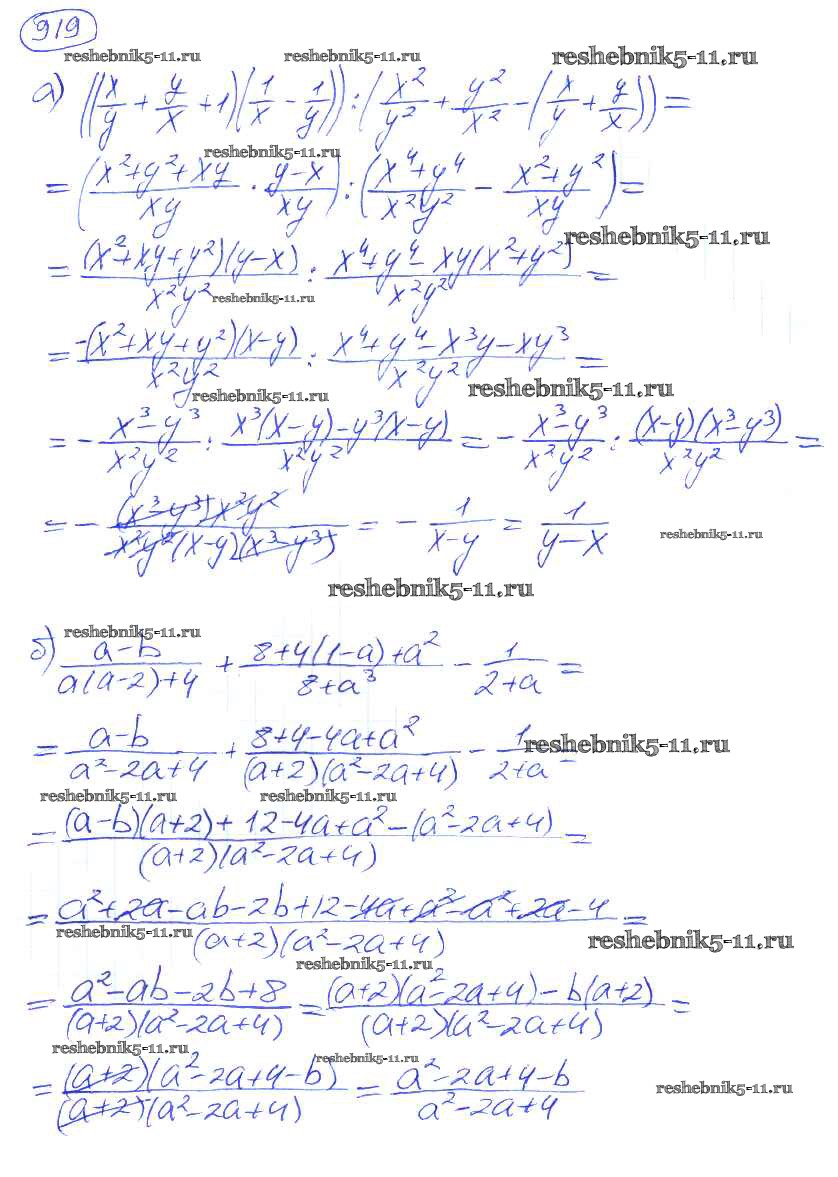 919
reshebnik5-11.ru reshebnik5-11.ru reshebnik5-11.ru
а) ((x/y + y/x + 1)(1/x - 1/y)) : (x²/y² + y²/x² - (x/y + y/x)) =
reshebnik5-11.ru
= ((x²+y²+xy)/xy · (y-x)/xy) : ((x⁴+y⁴)/x²y² - (x²+y²)/xy) =
reshebnik5-11.ru
= (x²+xy+y²)(y-x)/x²y² : (x⁴+y⁴-xy(x²+y²))/x²y² =
reshebnik5-11.ru
= -(x²+xy+y²)(x-y)/x²y² : (x⁴+y⁴-x³y-xy³)/x²y² =
reshebnik5-11.ru reshebnik5-11.ru
= - (x³-y³)/x²y² : (x³(x-y)-y³(x-y))/x²y² = - (x³-y³)/x²y² : (x-y)(x³-y³)/x²y² =
= - (x³-y³)x²y²/x²y²(x-y)(x³-y³) = - 1/(x-y) = 1/(y-x)
reshebnik5-11.ru
reshebnik5-11.ru
reshebnik5-11.ru
б) (a-b)/(a(a-2)+4) + (8+4(1-a)+a²)/(8+a³) - 1/(2+a) =
= (a-b)/(a²-2a+4) + (8+4-4a+a²)/((a+2)(a²-2a+4)) - 1/(2+a) =
reshebnik5-11.ru
reshebnik5-11.ru reshebnik5-11.ru
= ((a-b)(a+2)+12-4a+a²-(a²-2a+4))/((a+2)(a²-2a+4)) =
= (a²+2a-ab-2b+12-4a+a²-a²+2a-4)/((a+2)(a²-2a+4)) =
reshebnik5-11.ru reshebnik5-11.ru
reshebnik5-11.ru
= (a²-ab-2b+8)/((a+2)(a²-2a+4)) = ((a+2)(a²-2a+4)-b(a+2))/((a+2)(a²-2a+4)) =
reshebnik5-11.ru reshebnik5-11.ru
= (a+2)(a²-2a+4-b)/((a+2)(a²-2a+4)) = (a²-2a+4-b)/(a²-2a+4)
reshebnik5-11.ru